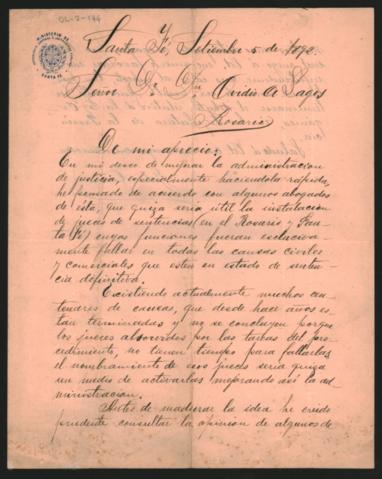 DL-2-144
MINISTERIO DE
SANTA FE
Santa Fé, Setiembre 5 de 1892.
Señor Dr. Dn. Ovidio A. Lagos
Rosario
De mi aprecio:
En mi deseo de mejorar la administracion
de justicia, especialmente haciendola rápida,
he pensado de acuerdo con algunos abogados
de ésta, que quizá seria útil la instalacion
de jueces de sentencias (en el Rosario y San-
ta Fé) cuyas funciones fueran esclusiva-
mente fallar en todas las causas civiles
y comerciales que estén en estado de senten-
cia definitiva.
Existiendo actualmente muchos cen-
tenares de causas, que desde hace años es-
tan terminadas y no se concluyen porque
los jueces absorvidos por las tareas del pro-
cedimiento, no tienen tiempo para fallarlas,
el nombramiento de esos jueces seria quiza
un medio de activarlas mejorando asi la ad-
ministracion.
Antes de madurar la idea he creido
prudente consultar la opinion de algunos de